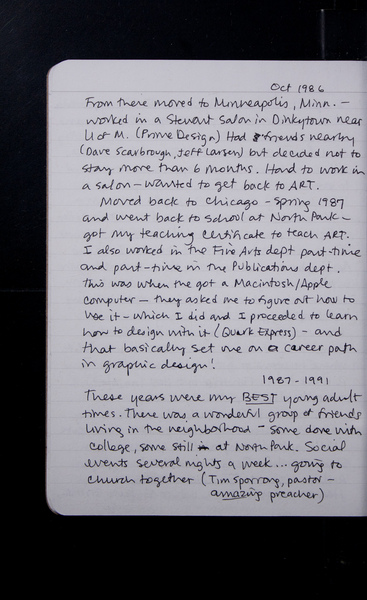 Oct 1986
From there moved to Minneapolis, Minn. –
worked in a Stewart Salon in Dinkytown near
U of M. (Prime Design) Had friends nearby
(Dave Scarbrough, Jeff Larsen) but decided not to
stay more than 6 months. Hard to work in
a salon – wanted to get back to ART.
Moved back to Chicago – Spring 1987
and went back to school at North Park –
got my teaching certificate to teach ART.
I also worked in the Fine Arts dept part-time
and part-time in the Publications dept.
This was when the got a Macintosh/Apple
computer – they asked me to figure out how to
use it – which I did and I proceeded to learn
how to design with it (Quark Express) – and
that basically set me on a career path
in graphic design!
1987-1991
These years were my BEST young adult
times. There was a wonderful group of friends
living in the neighborhood – some done with
college, some still at North Park. Social
events several nights a week... going to
church together (Tim Sporrong, pastor –
amazing preacher)